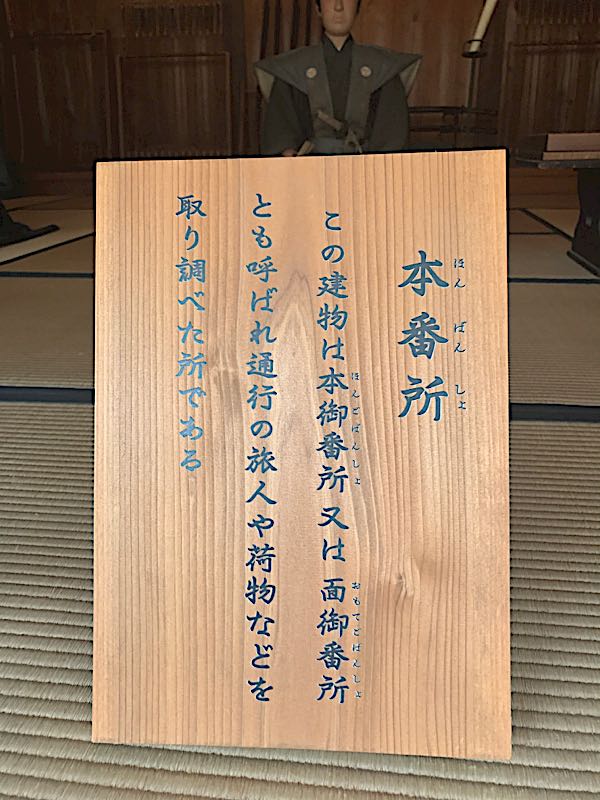 本番所
ほんばんしょ
この建物は本御番所又は面御番所
ほんごばんしょ
おもてごばんしょ
とも呼ばれ通行の旅人や荷物などを
取り調べた所である